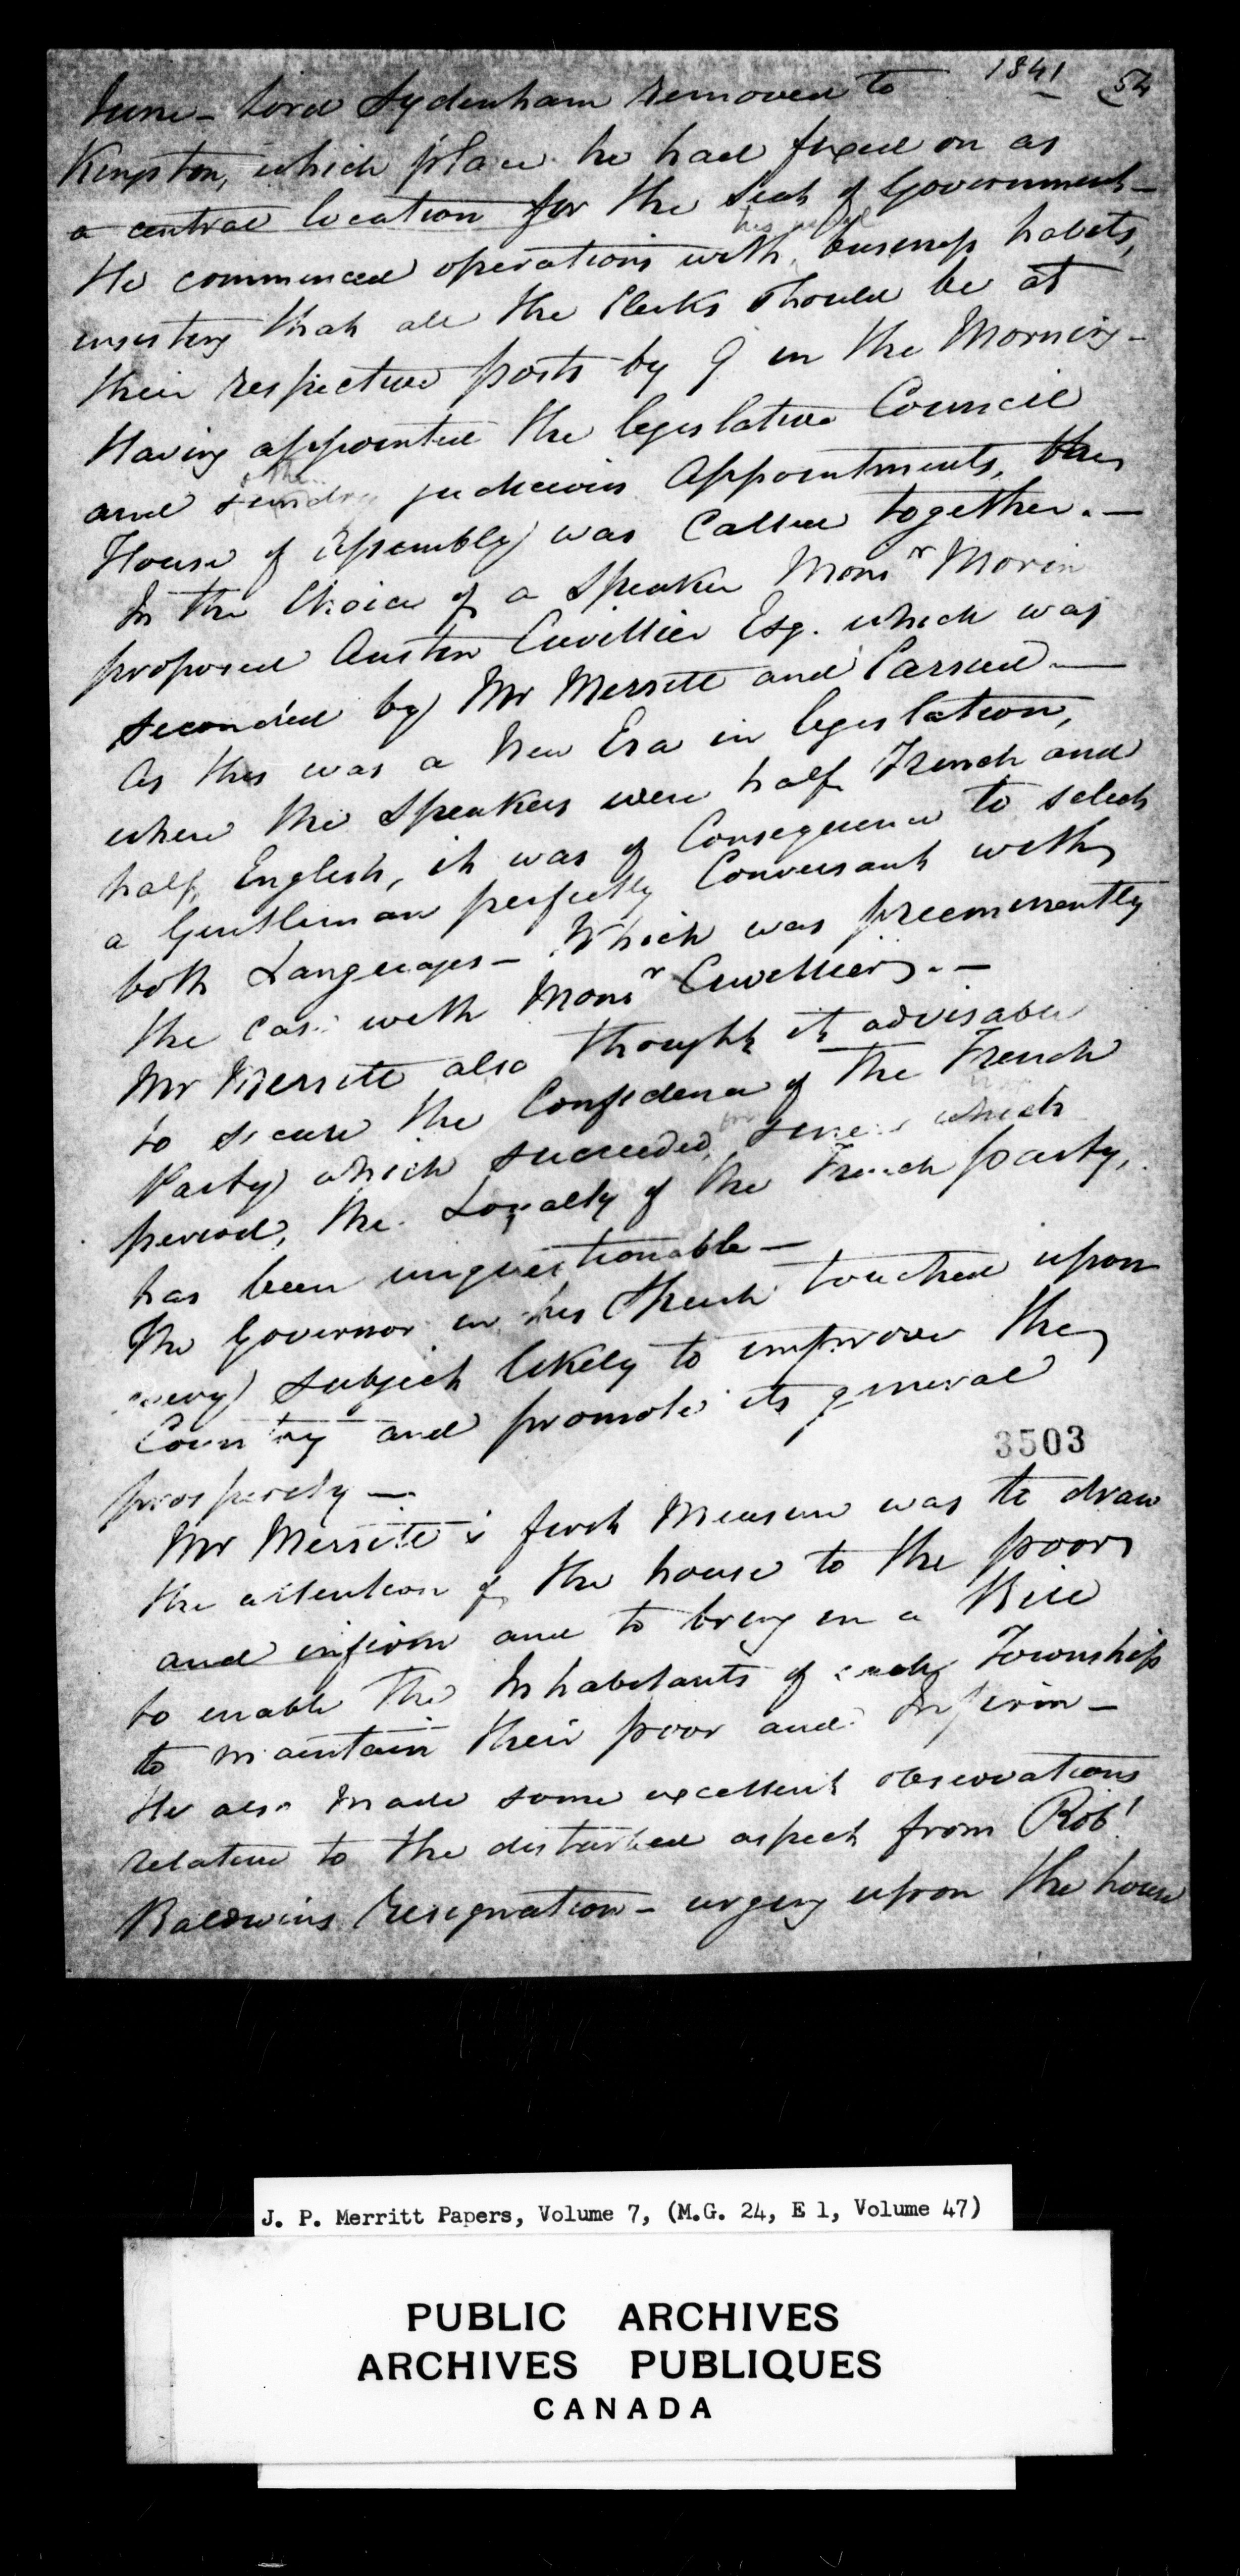 1841 54
June - Lord Sydenham removed to
Kingston, which place he had fixed on as
a central location for the Seat of Government -
his usual
He commenced operations with business habits,
insisting that all the Clerks should be at
their respective posts by 9 in the Morning -
Having appointed the legislative Council
other
and sundry judicious appointments, the
House of Assembly was Called together. -
In the Choice of a Speaker Monsr Morin
proposed Austin Cuvillier Esq. which was
seconded by Mr Merritt and Carried -
As this was a New Era in legislation,
where the Speakers were half French and
half English, it was of Consequence to select
a Gentleman perfectly Conversant with
both Languages - Which was preeminently
the case with Monsr Cuvillier. -
Mr Merritt also thought it advisable
to secure the Confidence of the French
Party which succeeded, since which
period, the Loyalty of the French party,
has been unquestionable -
The Governor in his Speech touched upon
every subject likely to improve the
Country and promote its general
prosperity -
3503
Mr Merritt's first Measure was to draw
the attention of the house to the poor
and infirm and to bring in a Bill
to enable the Inhabitants of each Township
to maintain their poor and Infirm -
He also made some excellent observations
relative to the disturbed aspect from Robt
Baldwins resignation - urging upon the house
J. P. Merritt Papers, Volume 7, (M.G. 24, E 1, Volume 47)
PUBLIC ARCHIVES
ARCHIVES PUBLIQUES
CANADA